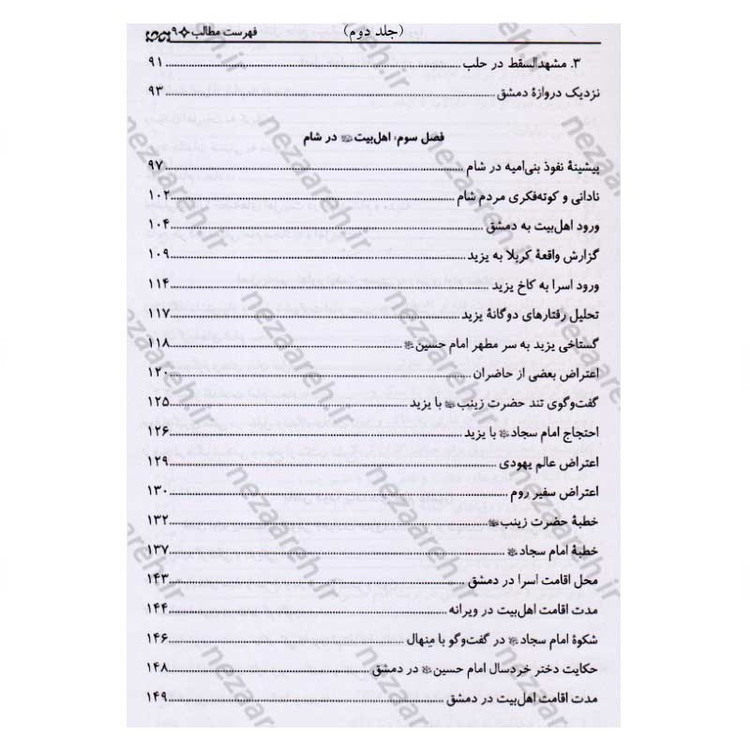 (جلد دوم)
فهرست مطالب ۹
۳. مشهدالسقط در حلب ........ ۹۱
نزدیک دروازهٔ دمشق ........ ۹۳
فصل سوم: اهل‌بیت در شام
پیشینهٔ نفوذ بنی‌امیه در شام ........ ۹۷
نادانی و کوته‌فکری مردم شام ........ ۱۰۲
ورود اهل‌بیت به دمشق ........ ۱۰۴
گزارش واقعهٔ کربلا به یزید ........ ۱۰۹
ورود اسرا به کاخ یزید ........ ۱۱۴
تحلیل رفتارهای دوگانهٔ یزید ........ ۱۱۷
گستاخی یزید به سر مطهر امام حسین ........ ۱۱۸
اعتراض بعضی از حاضران ........ ۱۲۰
گفت‌وگوی تند حضرت زینب با یزید ........ ۱۲۵
احتجاج امام سجاد با یزید ........ ۱۲۶
اعتراض عالم یهودی ........ ۱۲۹
اعتراض سفیر روم ........ ۱۳۰
خطبهٔ حضرت زینب ........ ۱۳۲
خطبهٔ امام سجاد ........ ۱۳۷
محل اقامت اسرا در دمشق ........ ۱۴۳
مدت اقامت اهل‌بیت در ویرانه ........ ۱۴۴
شکوهٔ امام سجاد در گفت‌وگو با منهال ........ ۱۴۶
حکایت دختر خردسال امام حسین در دمشق ........ ۱۴۸
مدت اقامت اهل‌بیت در دمشق ........ ۱۴۹
nezaareh.ir